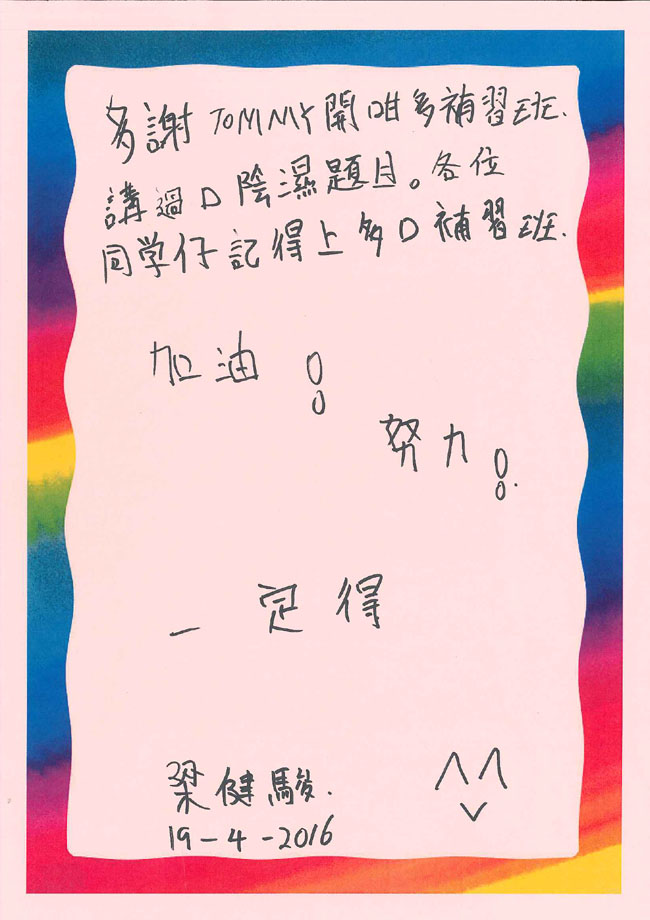 多謝 TOMMY 開咁多補習班.
講過D陰濕題目。各位
同学仔記得上多D補習班.
加油!
努力!
一定得
梁健駿.
19-4-2016